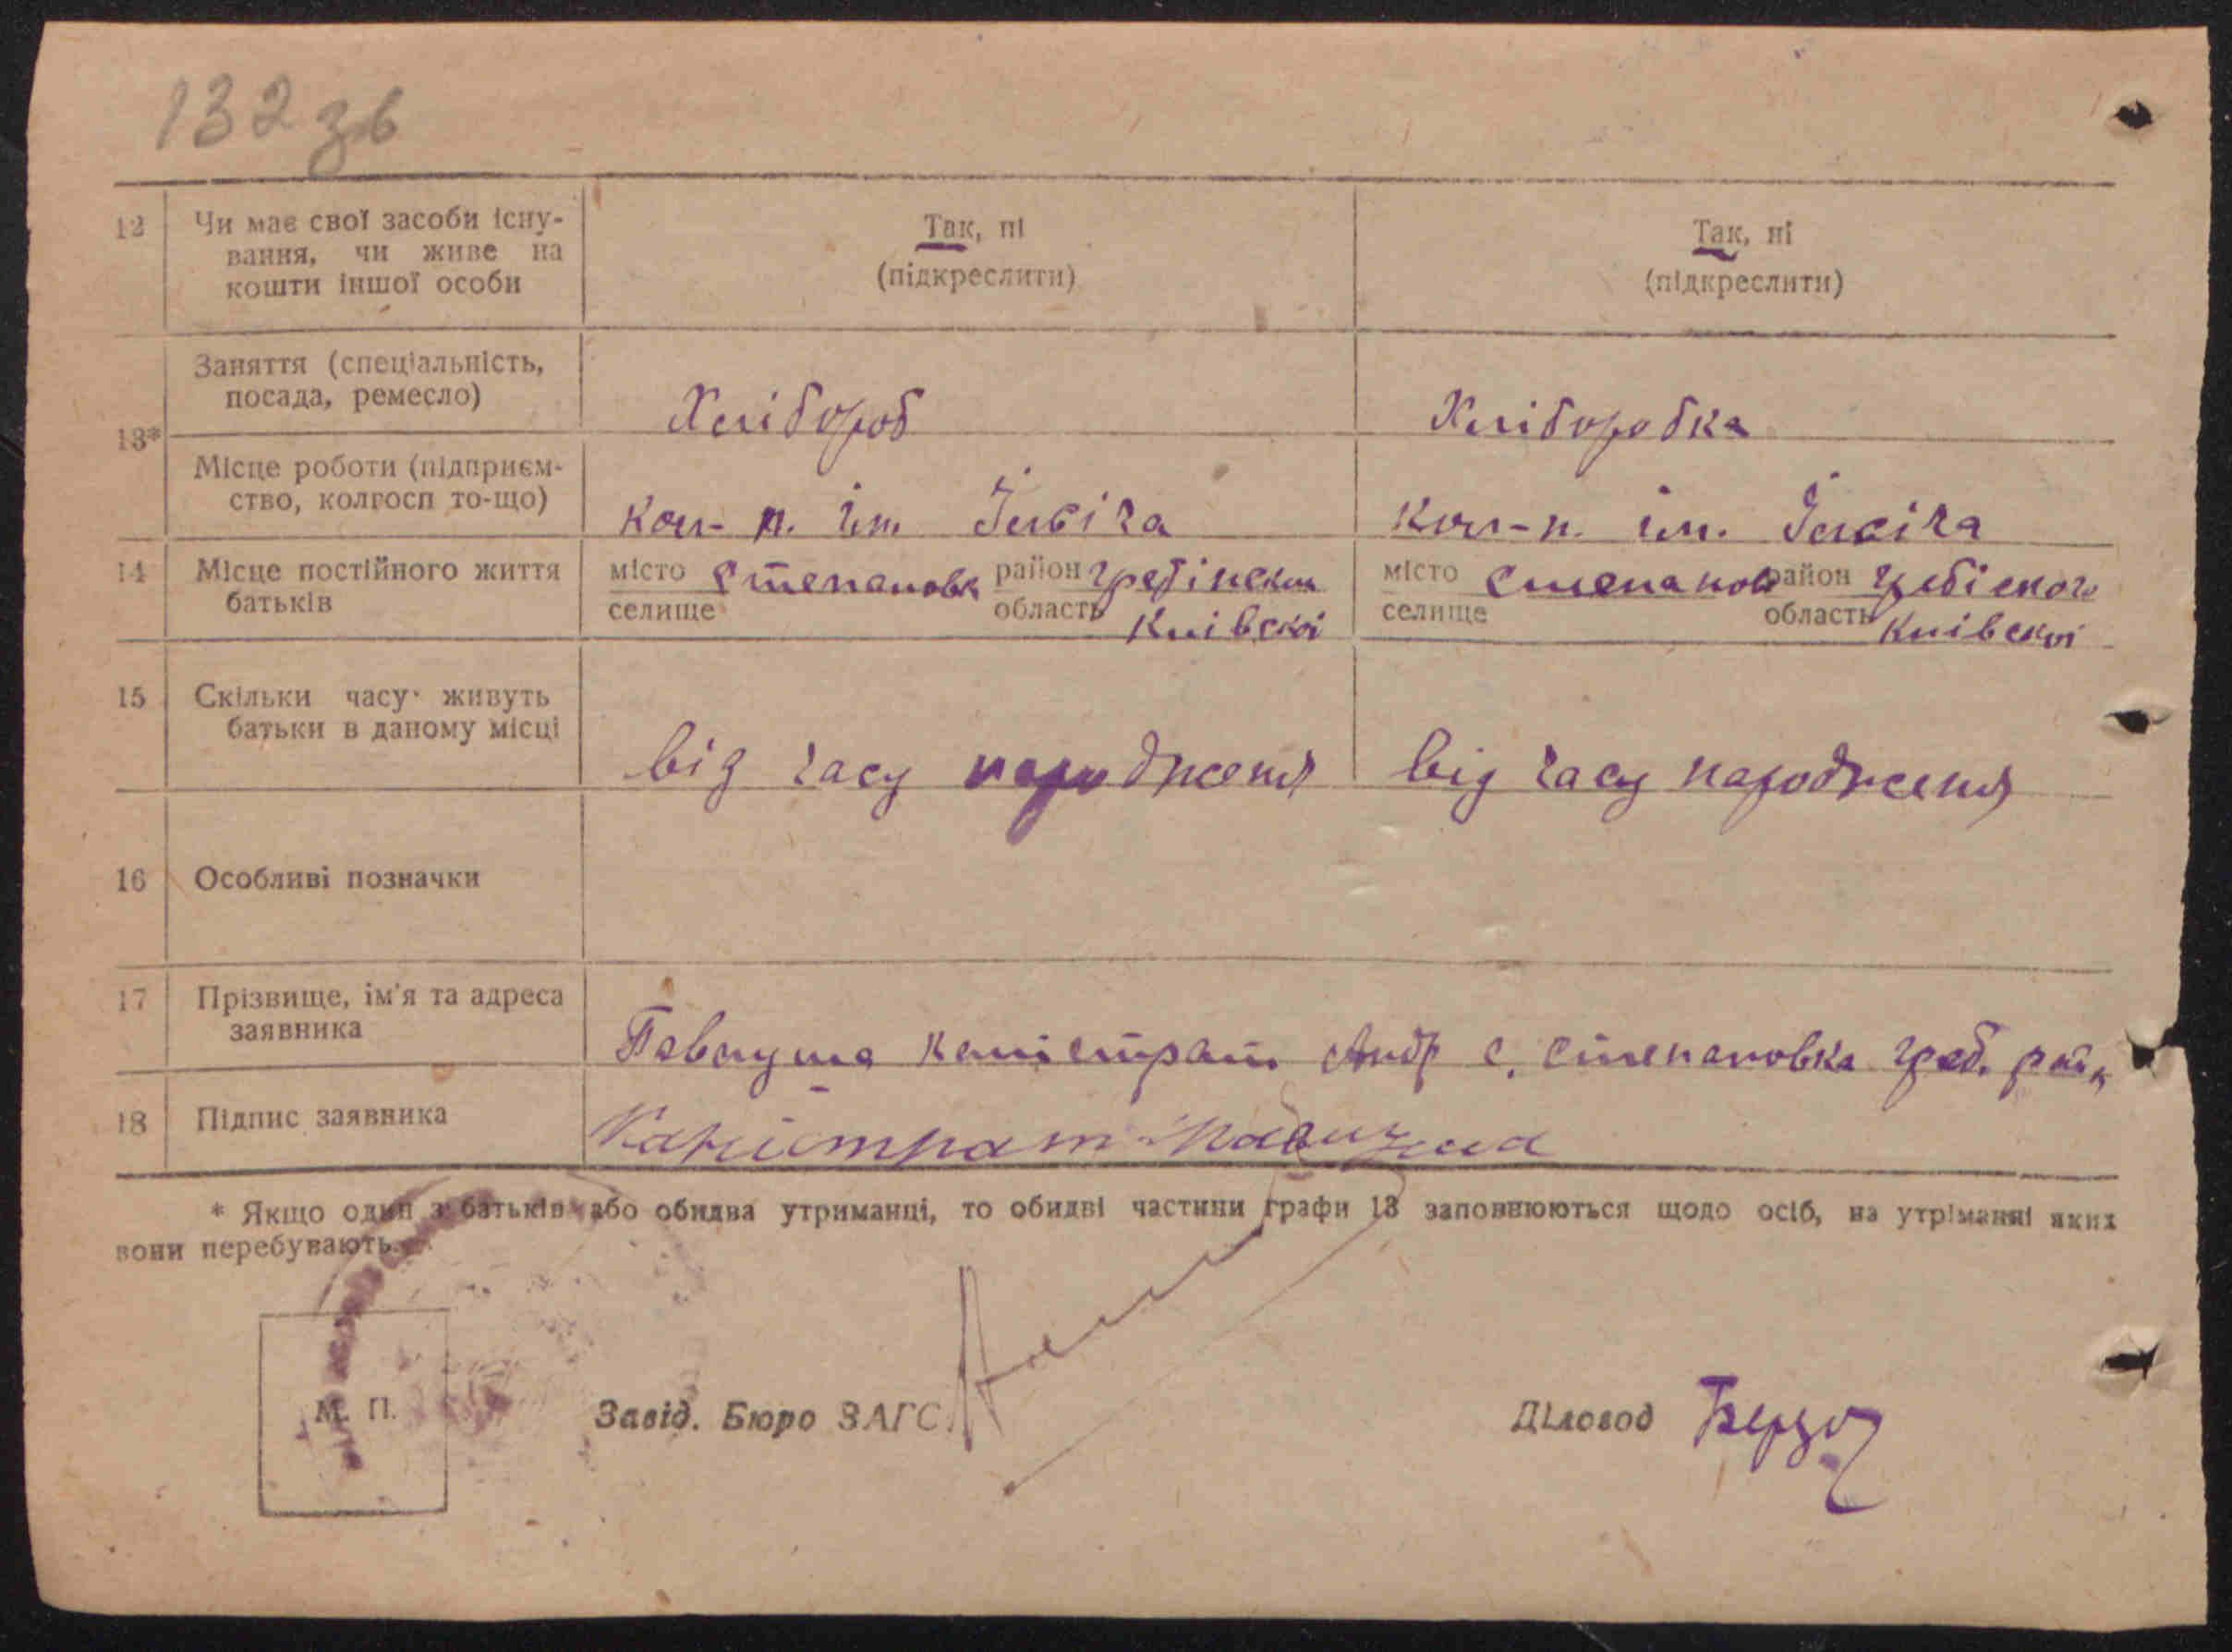 132 зв
12 Чи має свої засоби існу- Так, ні Так, ні
вання, чи живе на
кошти іншої особи (підкреслити) (підкреслити)
Заняття (спеціальність,
посада, ремесло) Хлібороб Хлібородка
13*
Місце роботи (підприєм-
ство, колгосп то-що) кол-п. ім. Ілвіча кол-п. ім. Ілвіча
14 Місце постійного життя місто Степановк район гребінским місто Степанов район
батьків селище область Киівскоі селище область Киівскоі
15 Скільки часу живуть
батьки в даному місці від часу народженя від часу народженя
16 Особливі позначки
17 Прізвище, ім'я та адреса
заявника Андр с. Степановка греб. рай
18 Підпис заявника
* Якщо один з батьків або обидва утриманці, то обидві частини графи 13 заповнюються щодо осіб, на утріманні яких
вони перебувають.
М. П. Завід. Бюро ЗАГС Діловод